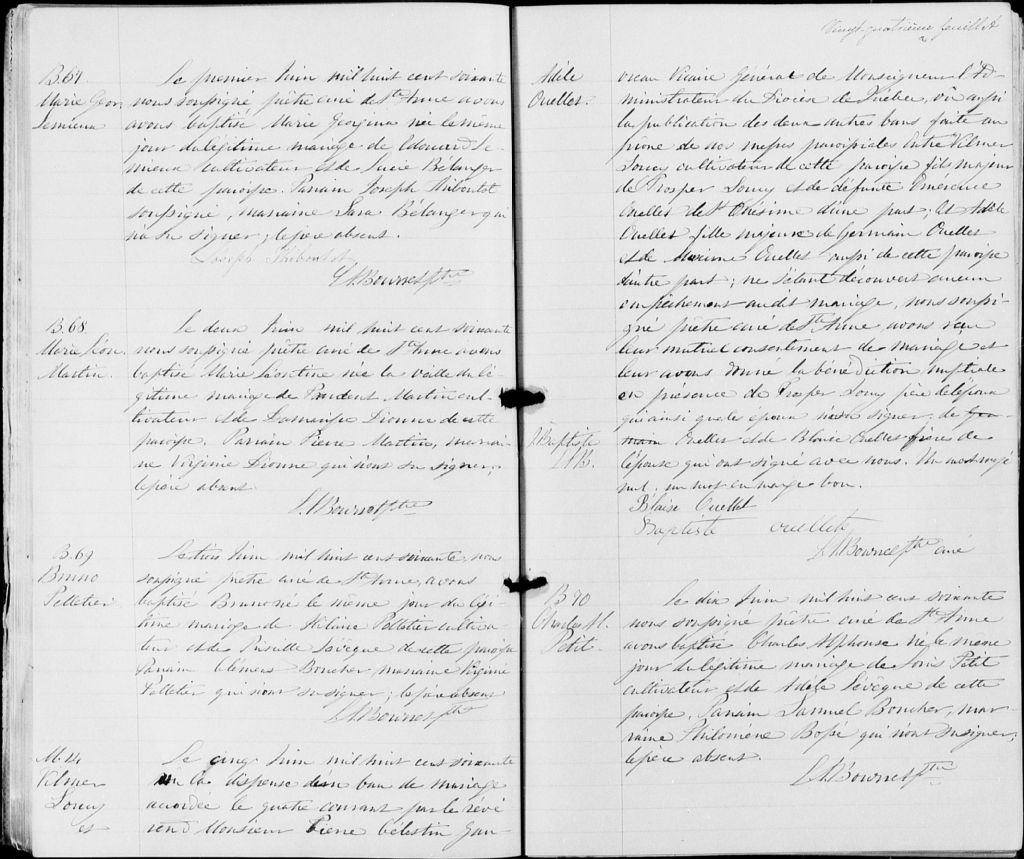 B. 67.
Marie Geor.
Lemieux
Le premier Juin mil huit cent soixante
nous soussigné prêtre curé de Ste Anne avons
avons baptisé Marie Georgina née le même
jour du légitime mariage de Edouard Le-
mieux cultivateur et de Lucie Bélanger
de cette paroisse. Parrain Joseph Thiboutot
soussigné, marraine Sara Bélanger qui
n'a su signer; le père absent.
Joseph Thiboutot
B. 68.
Marie Léon.
Martin.
Le deux Juin mil huit cent soixante
nous soussigné prêtre curé de Ste Anne avons
baptisé Marie Léontine née la veille du lé-
gitime mariage de Prudent Martin cul-
tivateur et de Damarise Dionne de cette
paroisse. Parrain Pierre Martin, marrai-
ne Virginie Dionne qui n'ont su signer;
le père absent.
B. 69
Bruno
Pelletier
Le trois Juin mil huit cent soixante, nous
soussigné prêtre curé de Ste Anne, avons
baptisé Bruno né le même jour du légi-
time mariage de Pelletier cultiva-
teur et de Priscille Lévêque de cette paroisse
Parrain Clément Boucher, marraine Virginie
Pelletier qui n'ont su signer; le père absent
M. 14
Elmer
Soucy
et
Le cinq Juin mil huit cent soixante
vu la dispense d'un ban de mariage
accordée le quatre courant par le révé
rend Monsieur Pierre Célestin Gau-
Vingt-quatrième feuillet
Adèle
Ouellet.
vreau Vicaire Général de Monseigneur l'Ad-
ministrateur du Diocèse de Québec, vu aussi
la publication des deux autres bans faite au
prône de nos messes paroissiales entre Elmer
Soucy cultivateur de cette paroisse fils majeur
de Prosper Soucy et de défunte Émérence
Ouellet de St Onésime d'une part; Et Adèle
Ouellet fille majeure de Germain Ouellet
et de Ouellet aussi de cette paroisse
d'autre part; ne s'étant découvert aucun
empêchement au dit mariage, nous soussi-
gné prêtre curé de Ste Anne avons reçu
leur mutuel consentement de mariage et
leur avons donné la bénédiction nuptiale
en présence de Prosper Soucy père de l'époux
qui ainsi que les époux n'a su signer, de Ger-
J. Baptiste
main Ouellet et de Blaise Ouellet frères de
l'épouse qui ont signé avec nous. Un mot rayé
nul, un mot en marge bon.
Blaise Ouellet
Baptiste ouellet
B 70
Charles A.
Petit.
Le dix Juin mil huit cent soixante
nous soussigné prêtre curé de Ste Anne
avons baptisé Charles Alphonse né le même
jour du légitime mariage de Louis Petit
cultivateur et de Adèle Lévêque de cette
paroisse. Parrain Samuel Boucher, mar-
raine Philomène Bossé qui n'ont su signer;
le père absent.